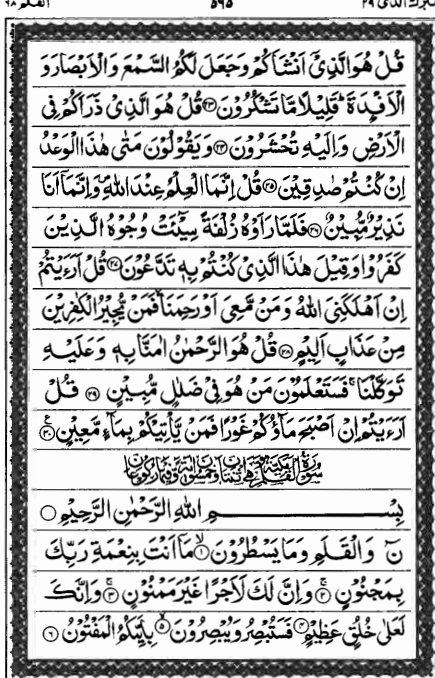 تبرك الذی ۲۹ ۵۶۵ القلم ۶۸
قُلْ هُوَ الَّذِیْۤ اَنْشَاَكُمْ وَجَعَلَ لَكُمُ السَّمْعَ وَالْاَبْصَارَ وَ
الْاَفْـِٕدَةَ ؕ قَلِیْلًا مَّا تَشْكُرُوْنَ ۝۲۳ قُلْ هُوَ الَّذِیْ ذَرَاَكُمْ فِی
الْاَرْضِ وَاِلَیْهِ تُحْشَرُوْنَ ۝۲۴ وَیَقُوْلُوْنَ مَتٰی هٰذَا الْوَعْدُ
اِنْ كُنْتُمْ صٰدِقِیْنَ ۝۲۵ قُلْ اِنَّمَا الْعِلْمُ عِنْدَ اللّٰهِ ۪ وَاِنَّمَاۤ اَنَا
نَذِیْرٌ مُّبِیْنٌ ۝۲۶ فَلَمَّا رَاَوْهُ زُلْفَةً سِیْٓـَٔتْ وُجُوْهُ الَّذِیْنَ
كَفَرُوْا وَقِیْلَ هٰذَا الَّذِیْ كُنْتُمْ بِهٖ تَدَّعُوْنَ ۝۲۷ قُلْ اَرَءَیْتُمْ
اِنْ اَهْلَكَنِیَ اللّٰهُ وَمَنْ مَّعِیَ اَوْ رَحِمَنَا ۙ فَمَنْ یُّجِیْرُ الْكٰفِرِیْنَ
مِنْ عَذَابٍ اَلِیْمٍ ۝۲۸ قُلْ هُوَ الرَّحْمٰنُ اٰمَنَّا بِهٖ وَعَلَیْهِ
تَوَكَّلْنَا ۚ فَسَتَعْلَمُوْنَ مَنْ هُوَ فِیْ ضَلٰلٍ مُّبِیْنٍ ۝۲۹ قُلْ
اَرَءَیْتُمْ اِنْ اَصْبَحَ مَآؤُكُمْ غَوْرًا فَمَنْ یَّاْتِیْكُمْ بِمَآءٍ مَّعِیْنٍ ۝۳۰
سُوْرَةُ الْقَلَمِ مَكِّیَّةٌ وَّهِیَ اثْنَتَانِ وَخَمْسُوْنَ اٰیَةً وَّفِیْهَا رُكُوْعَانِ
بِسْمِ اللّٰهِ الرَّحْمٰنِ الرَّحِیْمِ
نٓ وَالْقَلَمِ وَمَا یَسْطُرُوْنَ ۝۱ۙ مَاۤ اَنْتَ بِنِعْمَةِ رَبِّكَ
بِمَجْنُوْنٍ ۝۲ۚ وَاِنَّ لَكَ لَاَجْرًا غَیْرَ مَمْنُوْنٍ ۝۳ۚ وَاِنَّكَ
لَعَلٰی خُلُقٍ عَظِیْمٍ ۝۴ فَسَتُبْصِرُ وَیُبْصِرُوْنَ ۝۵ۙ بِاَیِّىكُمُ الْمَفْتُوْنُ ۝۶